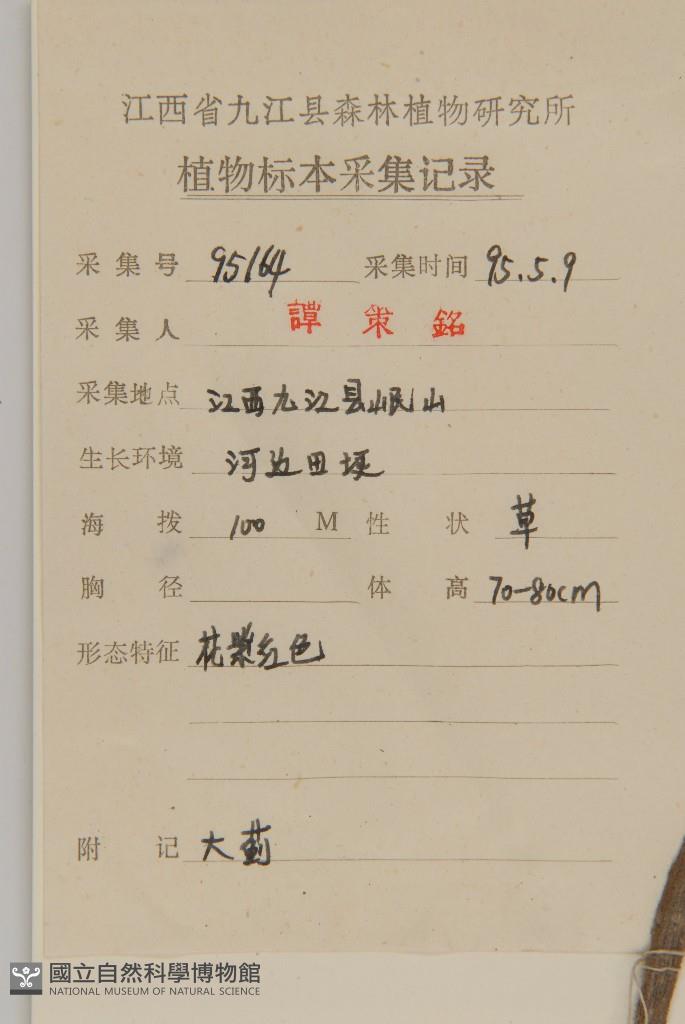 江西省九江县森林植物研究所
植物标本采集记录
采集号 95164 采集时间 95.5.9
采集人 譚策銘
采集地点 江西九江县岷山
生长环境 河边田埂
海拨 100 M 性状 草
胸径 体高 70-80cm
形态特征 花紫红色
附记 大蓟
國立自然科學博物館
NATIONAL MUSEUM OF NATURAL SCIENCE